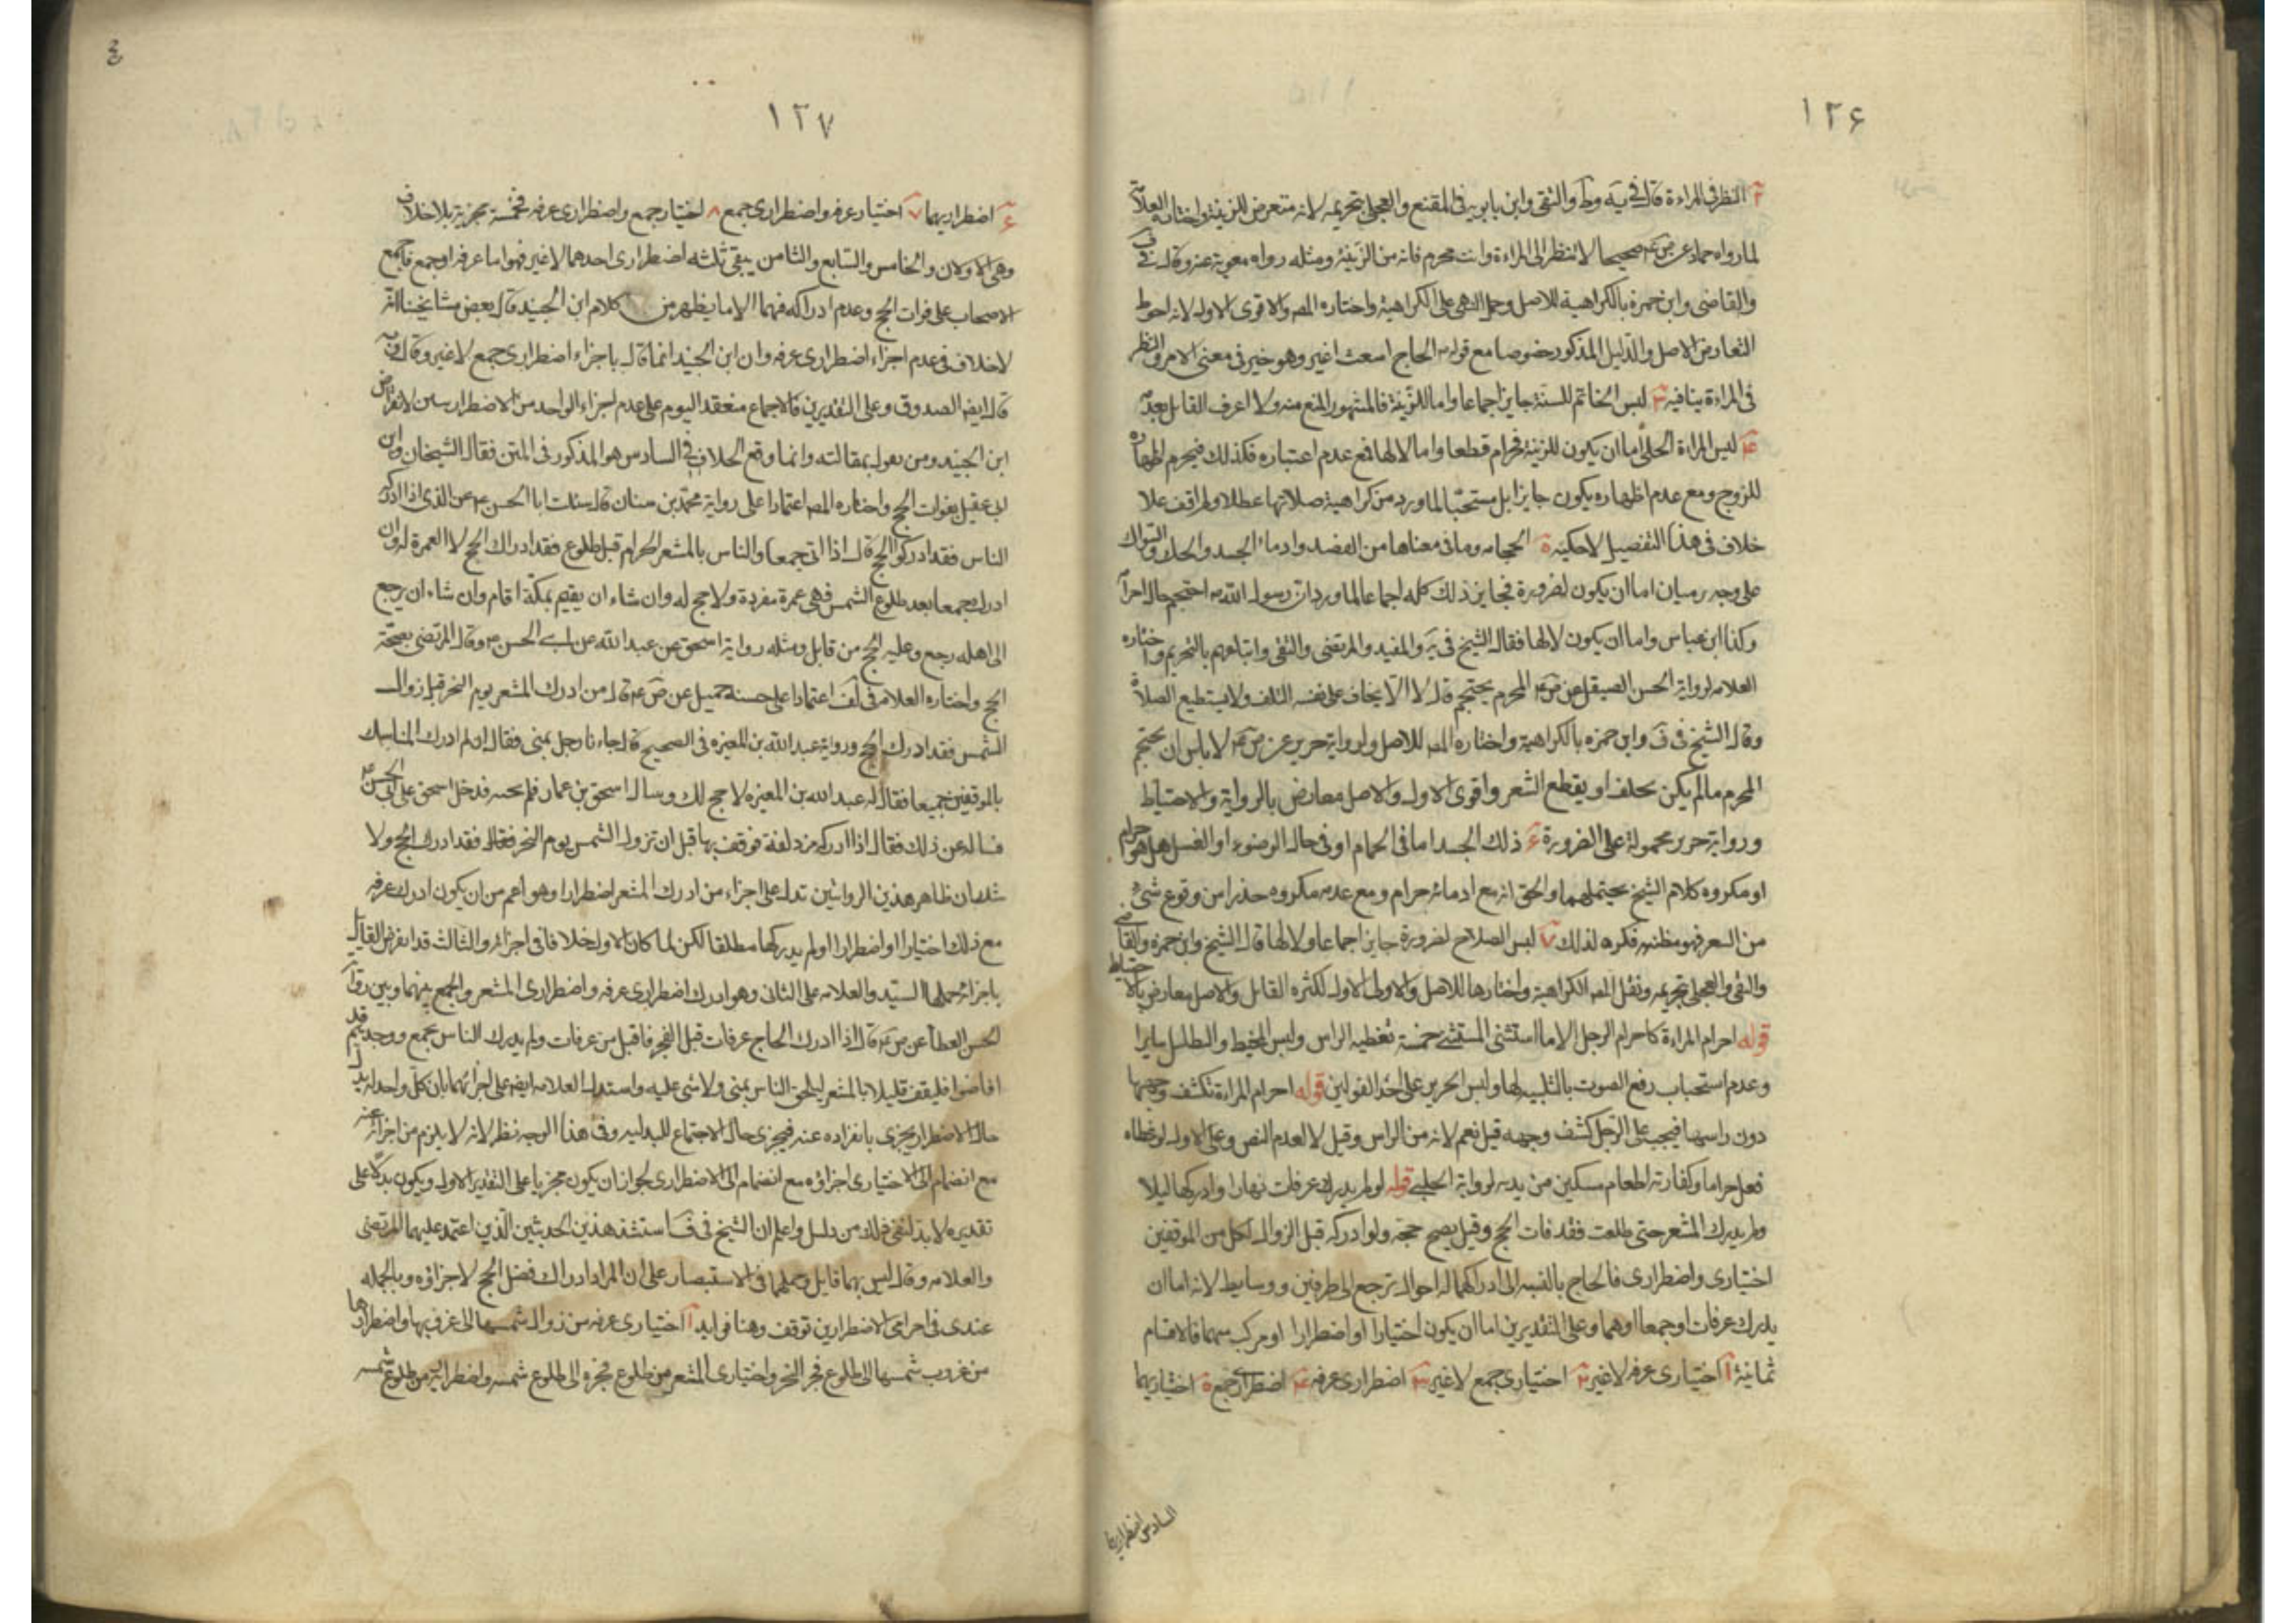 ١٢۶
٢ النظر في المراءة قال في يه وط والتقي وابن بابويه في المقنع والعجلي بتحريمه لانه متعرض للزينة واختاره العلامة
لما رواه حماد عن ص ع صحيحا لا تنظر الى المراءة وانت محرم فانه من الزينة ومثله رواه معوية عنه وقال في ف
والقاضي وابن حمزة بالكراهية للاصل وحمل النهي على الكراهية واختاره المص والاقوى الاول لانه احوط
التعارض الاصل والدليل المذكور خصوصا مع قوله الحاج اشعث اغبر وهو خبر في معنى الامر والنظر
في المراءة ينافيه ٣ لبس الخاتم للسنة جايز اجماعا واما للزينة فالمشهور المنع منه ولا اعرف القايل بعدمه
۴ لبس المراءة الحلي اما ان يكون للزينة فحرام قطعا واما لا لها فمع عدم اعتباره فكذلك فيحرم اظهاره
للزوج ومع عدم اظهاره يكون جايزا بل مستحبا لما ورد من كراهية صلاتها عطلا ولم اقف علا
خلاف في هذا التفصيل لاحكيه ة الحجامه وما في معناها من الفصد وادماء الجسد والحك والسواك
على وجه يدميان اما ان يكون لضرورة فجايز ذلك كله اجماعا لما ورد ان رسول الله ص احتجم حال احرامه
وكذا ابن عباس واما ان يكون لا لها فقال الشيخ في يه والمفيد والمرتضى والتقي واتباعهم بالتحريم واختاره
العلامه لرواية الحسن الصيقل عن ص ع المحرم يحتجم قال لا الا ان يخاف على نفسه التلف ولا يستطيع الصلاة
وقال الشيخ في ف وابن حمزه بالكراهية واختاره المص للاصل ولرواية حريز عن ص ع لا باس ان يحتجم
المحرم ما لم يكن يحلق او يقطع الشعر واقوى الاول والاصل معارض بالرواية والاحتياط
ورواية حريز محمولة على الضرورة ۶ ذلك الجسد اما في الحمام او في حال الوضوء او الغسل هل هو حرام
او مكروه كلام الشيخ يحتملهما والحق انه مع ادمائه حرام ومع عدمه مكروه حذرا من وقوع شيء
من الشعر فهو مظنته فكره لذلك ٧ لبس السلاح لضرورة جايز اجماعا ولا لها قال الشيخ وابن حمزه والقاضي
والتقي والعجلي بتحريمه ونقل المص الكراهية واختارها للاصل والاولى الاول لكثره القايل والاصل معارض بالاحتياط
قوله احرام المراءة كاحرام الرجل الا ما استثنى المستثنى خمسة تغطيه الراس ولبس المخيط والتظليل سايرا
وعدم استحباب رفع الصوت بالتلبيه لها ولبس الحرير على احد القولين قوله احرام المراءة تكشف وجهها
دون راسها فيجب على الرجل كشف وجهه قيل نعم لانه من الراس وقيل لا لعدم النص وعلى الاول لو غطاه
فعل حراما وكفارته اطعام مسكين من يده لرواية الحلبي قوله لو لم يدرك عرفات نهارا وادركها ليلا
ولم يدرك المشعر حتى طلعت فقد فات الحج وقيل يصح حجه ولو ادركه قبل الزوال لكل من الموقفين
اختيارى واضطرارى فالحاج بالنسبه الى ادراكهما له احوال ترجع الى طرفين ووسايط لانه اما ان
يدرك عرفات او جمعا او هما وعلى التقديرين اما ان يكون اختيارا او اضطرارا او مركب منهما فالاقسام
ثمانية ١ اختيارى عرفه لا غير ٢ اختيارى جمع لا غير ٣ اضطرارى عرفه ۴ اضطرارى جمع ة اختياريهما
السادس اضطراريهما
١٢٧
۶ اضطراريهما ٧ اختيار عرفه واضطرارى جمع ٨ اختيار جمع واضطرارى عرفه فخمسة مجزية بلا خلاف
وهي الاولان والخامس والسابع والثامن يبقى ثلثه اضطرارى احدهما لا غير فهو اما عرفه او جمع فاجمع
الاصحاب على فوات الحج وعدم ادراكه فهما الا ما يظهر من كلام ابن الجنيد قال بعض مشايخنا انه
لا خلاف في عدم اجزاء اضطرارى عرفه وان ابن الجنيد انما قال باجزاء اضطرارى جمع لا غير وقال
قاله ايضا الصدوق وعلى التقديرين فالاجماع منعقد اليوم على عدم اجزاء الواحد من الاضطرارين لانقراض
ابن الجنيد ومن يقول بمقالته وانما وقع الخلاف في السادس هو المذكور في المتن فقال الشيخان وابن
ابي عقيل بفوات الحج واختاره المص اعتمادا على رواية محمد بن سنان قال سئلت ابا الحسن ع عن الذى اذا ادركه
الناس فقد ادركوا الحج قال اذا اتى جمعا والناس بالمشعر الحرام قبل طلوع فقد ادرك الحج لا العمرة له وان
ادرك جمعا بعد طلوع الشمس فهي عمرة مفردة ولا حج له وان شاء ان يقيم بمكة اقام وان شاء ان يرجع
الى اهله رجع وعليه الحج من قابل ومثله رواية اسحق عن عبد الله عن ابي الحسن ع وقال المرتضى بصحة
الحج واختاره العلامه في لف اعتمادا على حسنة جميل عن ص ع قال من ادرك المشعر يوم النحر قبل زوال
الشمس فقد ادرك الحج ورواية عبد الله بن المغيره في الصحيح قال جاءنا رجل بمنى فقال اني لم ادرك الناس
بالموقفين جميعا فقال له عبد الله بن المغيره لا حج لك وسال اسحق بن عمار فلم يجبه فدخل اسحق على ابي الحسن ع
فساله عن ذلك فقال اذا ادرك مزدلفة فوقف بها قبل ان تزول الشمس يوم النحر فقال فقد ادرك الحج ولا
شك ان ظاهر هذين الروايتين تدل على اجزاء من ادرك المشعر اضطرارا وهو اعم من ان يكون ادرك عرفه
مع ذلك اختيارا او اضطرارا او لم يدركها مطلقا لكن لما كان الاول خلافا في اجزائه والثالث قد انقرض القايل
باجزائه حملها السيد والعلامه على الثاني وهو ادراك اضطرارى عرفه واضطرارى المشعر والجمع بينهما وبين رواية
الحسن العطار عن ص ع قال اذا ادرك الحاج عرفات قبل الفجر فاقبل من عرفات ولم يدرك الناس بجمع ووجدهم قد
افاضوا فليقف قليلا بالمشعر ليلحق الناس بمنى ولا شي عليه واستدل العلامه ايضا على اجزائهما بان كل واحد
حاله الاضطرار يجزى بانفراده عنه فيجزى حال الاجتماع للبدليه وفي هذا الوجه نظر لانه لا يلزم من اجزائه عنه
مع انضمام الى الاختيارى اجزاؤه مع انضمام الى الاضطرارى لجواز ان يكون مجزيا على التقدير الاول ويكون بدلا على
تقديره لا بد لنفي ذلك من دليل واعلم ان الشيخ في ف استشذ هذين الحديثين الذين اعتمد عليهما المرتضى
والعلامه وقال ليس بهما قايل وحملهما في الاستبصار على ان المراد ادراك فضل الحج لا اجزاؤه وبالجمله
عندى في اجزاء الاضطرارين توقف وهنا فوايد ١ اختيارى عرفه من زوال شمسها الى غروبها واضطرارها
من غروب شمسها الى طلوع فجر النحر واختيارى المشعر من طلوع فجره الى طلوع شمسه واضطراريه من طلوع شمسه